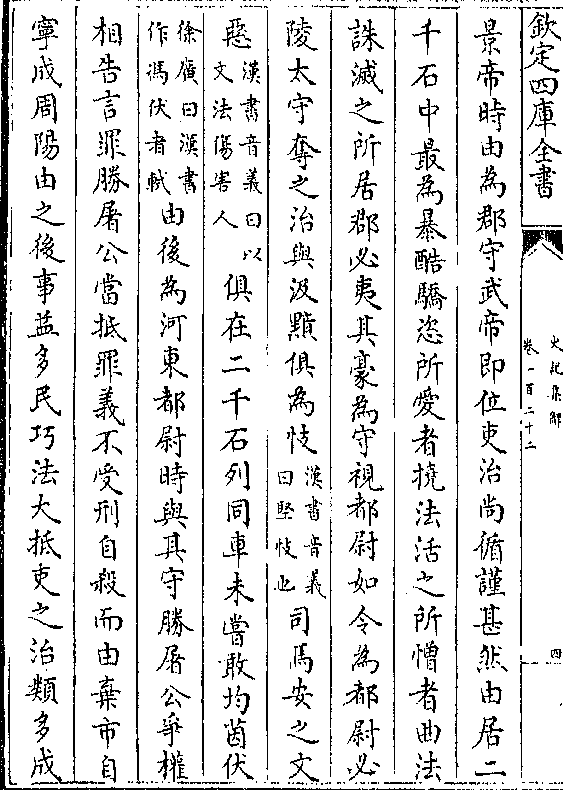 欽定四庫全書
史記集解
卷一百二十二
四
景帝時由為郡守武帝即位吏治尚循謹甚然由居二
千石中最為暴酷驕恣所愛者撓法活之所憎者曲法
誅滅之所居郡必夷其豪為守視都尉如令為都尉必
陵太守奪之治與汲黯俱為忮漢書音義曰堅忮也司馬安之文
惡漢書音義曰以文法傷害人俱在二千石列同車未嘗敢均茵伏
徐廣曰漢書作馮伏者軾由後為河東都尉時與其守勝屠公爭權
相告言罪勝屠公當抵罪義不受刑自殺而由棄市自
寧成周陽由之後事益多民巧法大抵吏之治類多成